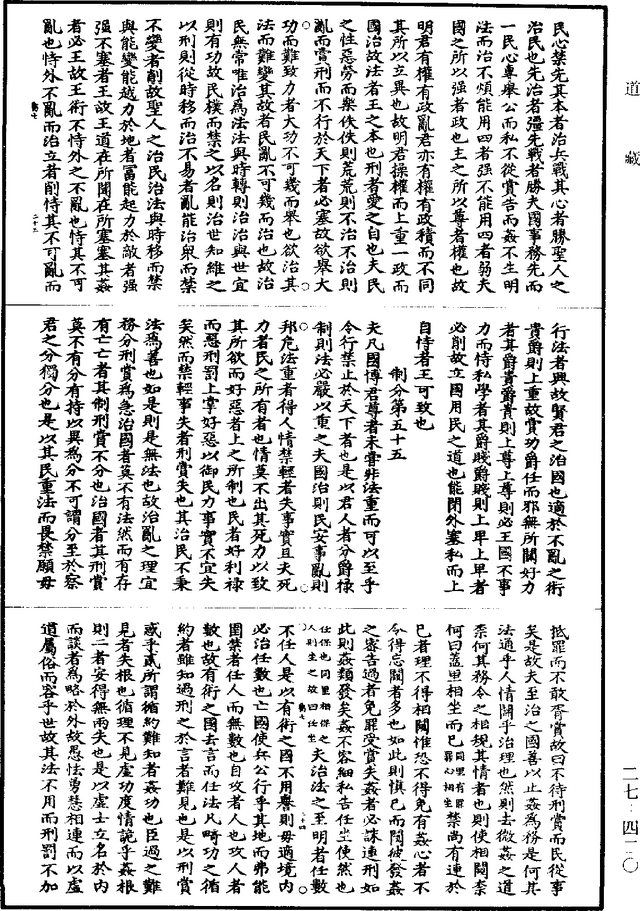 道藏
民心禁先其本者治兵戰其心者勝聖人之
治民也先治者彊先戰者勝夫國事務先而
一民心專舉公而私不從賞告而姦不生明
法而治不煩能用四者强不能用四者弱夫
國之所以强者政也主之所以尊者權也故
明君有權有政亂君亦有權有政積而不同
其所以立異也故明君操權而上重一政而
國治故法者王之本也刑者愛之自也夫民
之性惡勞而樂佚佚則荒荒則不治不治則
亂而賞刑而不行於天下者必塞故欲舉大
功而難致力者大功不可幾而舉也欲治其
法而難變其故者民亂不可幾而治也故治
民無常唯治為法法與時轉則治治與世宜
則有功故民樸而禁之以名則治世知維之
以刑則從時移而治不易者亂能治衆而禁
不變者削故聖人之治民治法與時移而禁
與能變能越力於地者富能起力於敵者强
强不塞者王故王道在所聞在所塞塞其姦
者必王故王術不恃外之不亂也恃其不可
亂也恃外不亂而治立者削恃其不可亂而
二十三
行法者興故賢君之治國也適於不亂之術
貴爵則上重故賞功爵任而邪無所關好力
者其爵貴爵貴則上尊上尊則必王國不事
力而恃私學者其爵賤爵賤則上卑上卑者
必削故立國用民之道也能閉外塞私而上
自恃者王可致也
制分第五十五
夫凡國博君尊者未嘗非法重而可以至乎
令行禁止於天下者也是以君人者分爵祿
制則法必嚴以重之夫國治則民安事亂則
邦危法重者得人情禁輕者失事實且夫死
力者民之所有者也情莫不出其死力以致
其所欲而好惡者上之所制也民者好利祿
而惡刑罰上掌好惡以御民力事實不宜失
矣然而禁輕事失者刑賞失也其治民不秉
法為善也如是則是無法也故治亂之理宜
務分刑賞為急治國者莫不有法然而有存
有亡亡者其制刑賞不分也治國者其刑賞
莫不有分有持以異為分不可謂分至於察
君之分獨分也是以其民重法而畏禁願毋
抵罪而不敢胥賞故曰不待刑賞而民從事
矣是故夫至治之國善以止姦為務是何其
法通乎人情關乎治理也然則去微姦之道
柰何其務令之相規其情者也則使相闚柰
何曰蓋里相坐而已同里有罪罪以相坐禁尚有連於
己者理不得相闚惟恐不得免有姦心者不
令得忘闚者多也如此則慎己而闚彼發姦
之密告過者免罪受賞失姦者必誅連刑如
此則姦類發矣姦不容細私告任坐使然也
任保也同里相保之人則坐之故曰任坐夫治法之至明者任數
不任人是以有術之國不用譽則毋適境內
必治任數也亡國使兵公行乎其地而弗能
圉禁者任人而無數也自攻者人也攻人者
數也故有術之國去言而任法凡畸功之循
約者雖知過刑之於言者難見也是以刑賞
惑乎貳所謂循約難知者姦功也臣過之難
見者失根也循理不見虛功度情詭乎姦根
則二者安得無兩失也是以虛士立名於內
而談者為略於外故愚怯勇慧相連而以虛
道屬俗而容乎世故其法不用而刑罰不加
二七:四二〇